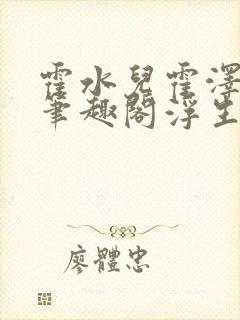 霍水兒霍澤
筆趣閣浮生
廖體忠